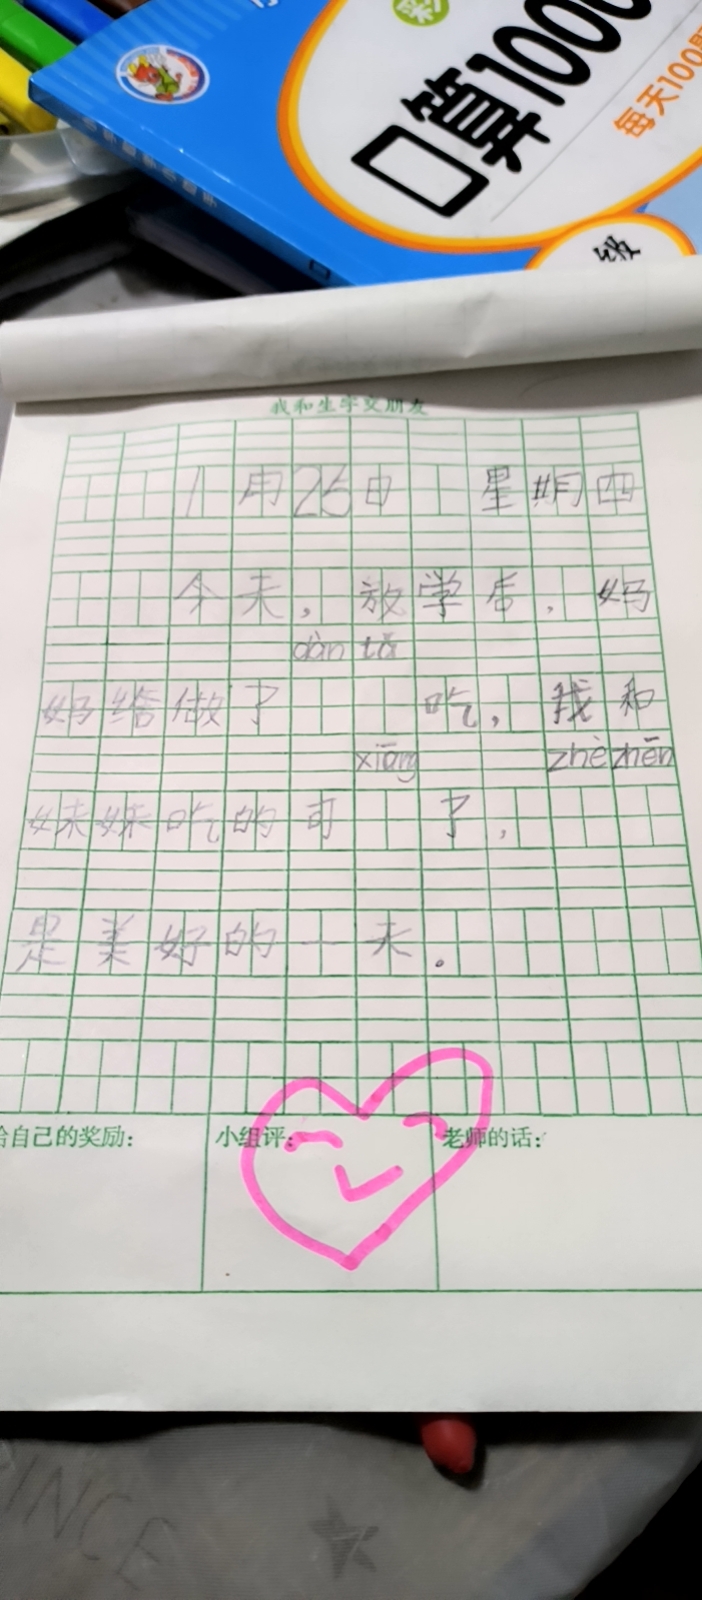 口算1000
每天100题
级
我和生字交朋友
1月25日 星期四
今天,放学后,妈
dàn tǎ
妈给做了 吃,我和
xiāng zhè zhēn
妹妹吃的可 了,
是美好的一天。
给自己的奖励: 小组评: 老师的话:
INCE